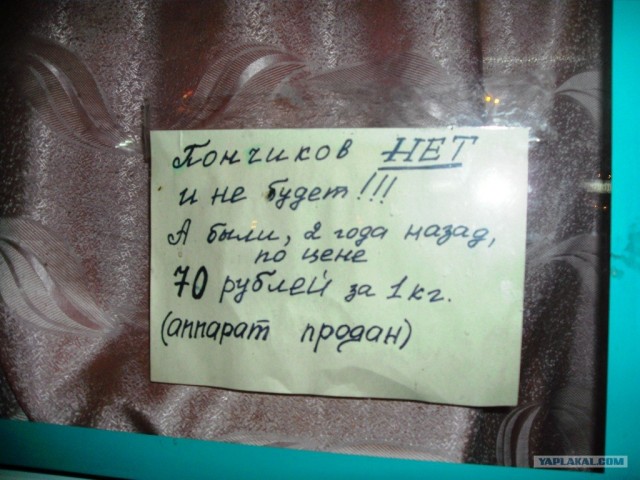 Пончиков НЕТ
и не будет!!!
А были, 2 года назад,
по цене
70 рублей за 1 кг.
(аппарат продан)
YAPLAKAL.COM